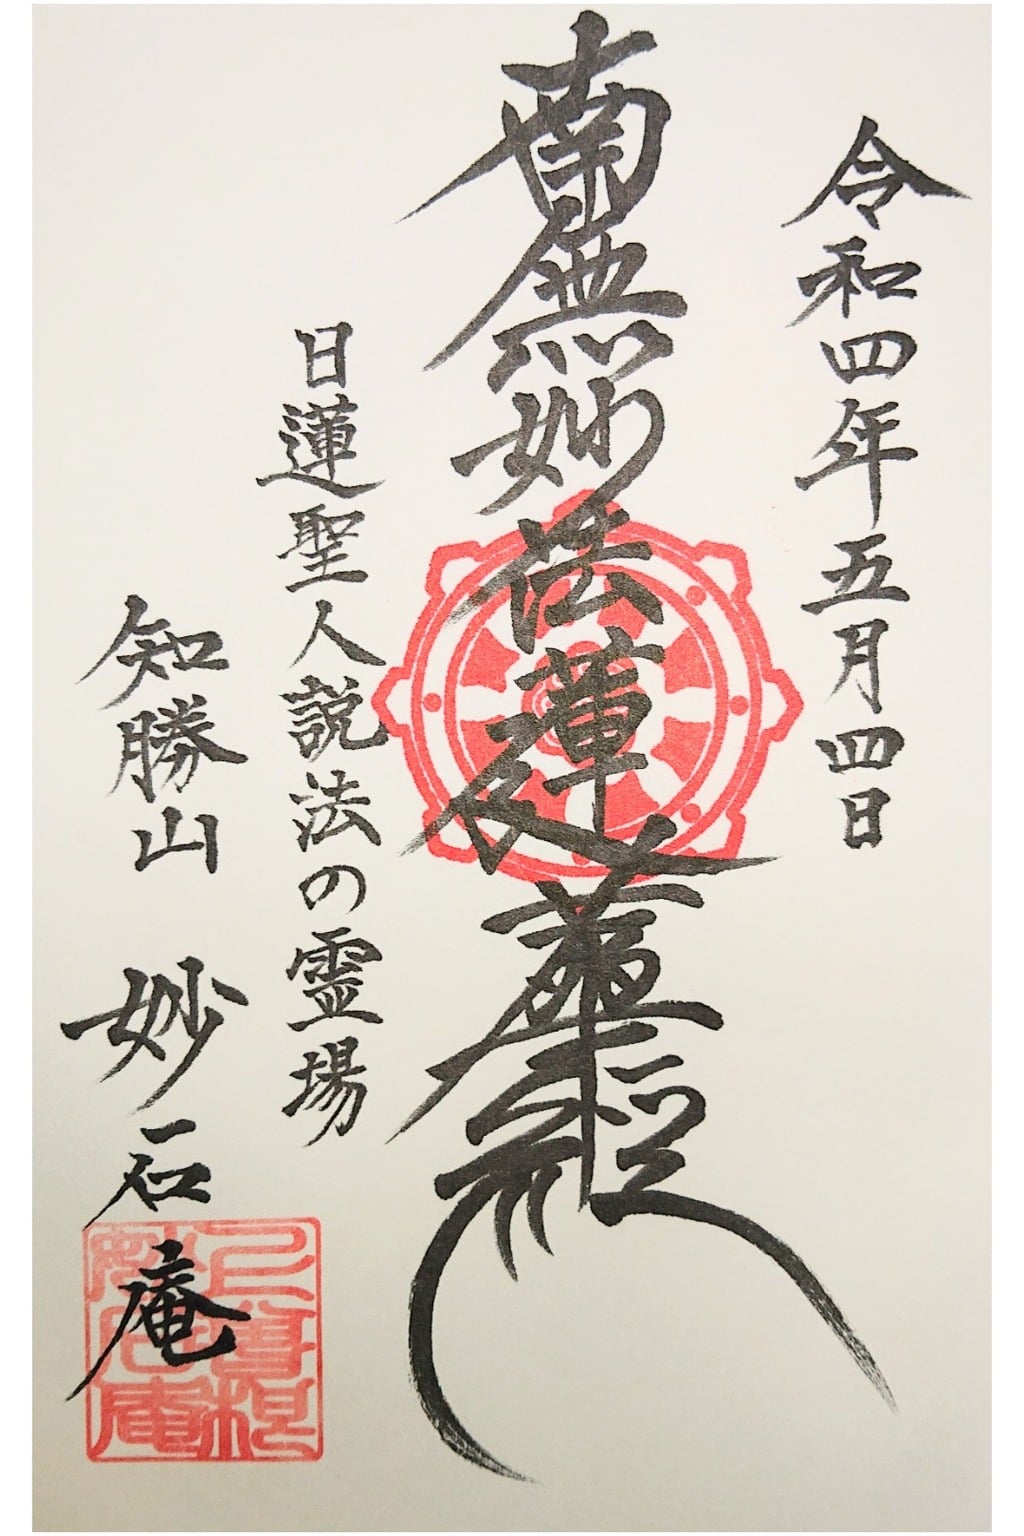 令和四年五月四日
南無妙法蓮華経
日蓮聖人説法の霊場
知勝山 妙石庵
妙石庵